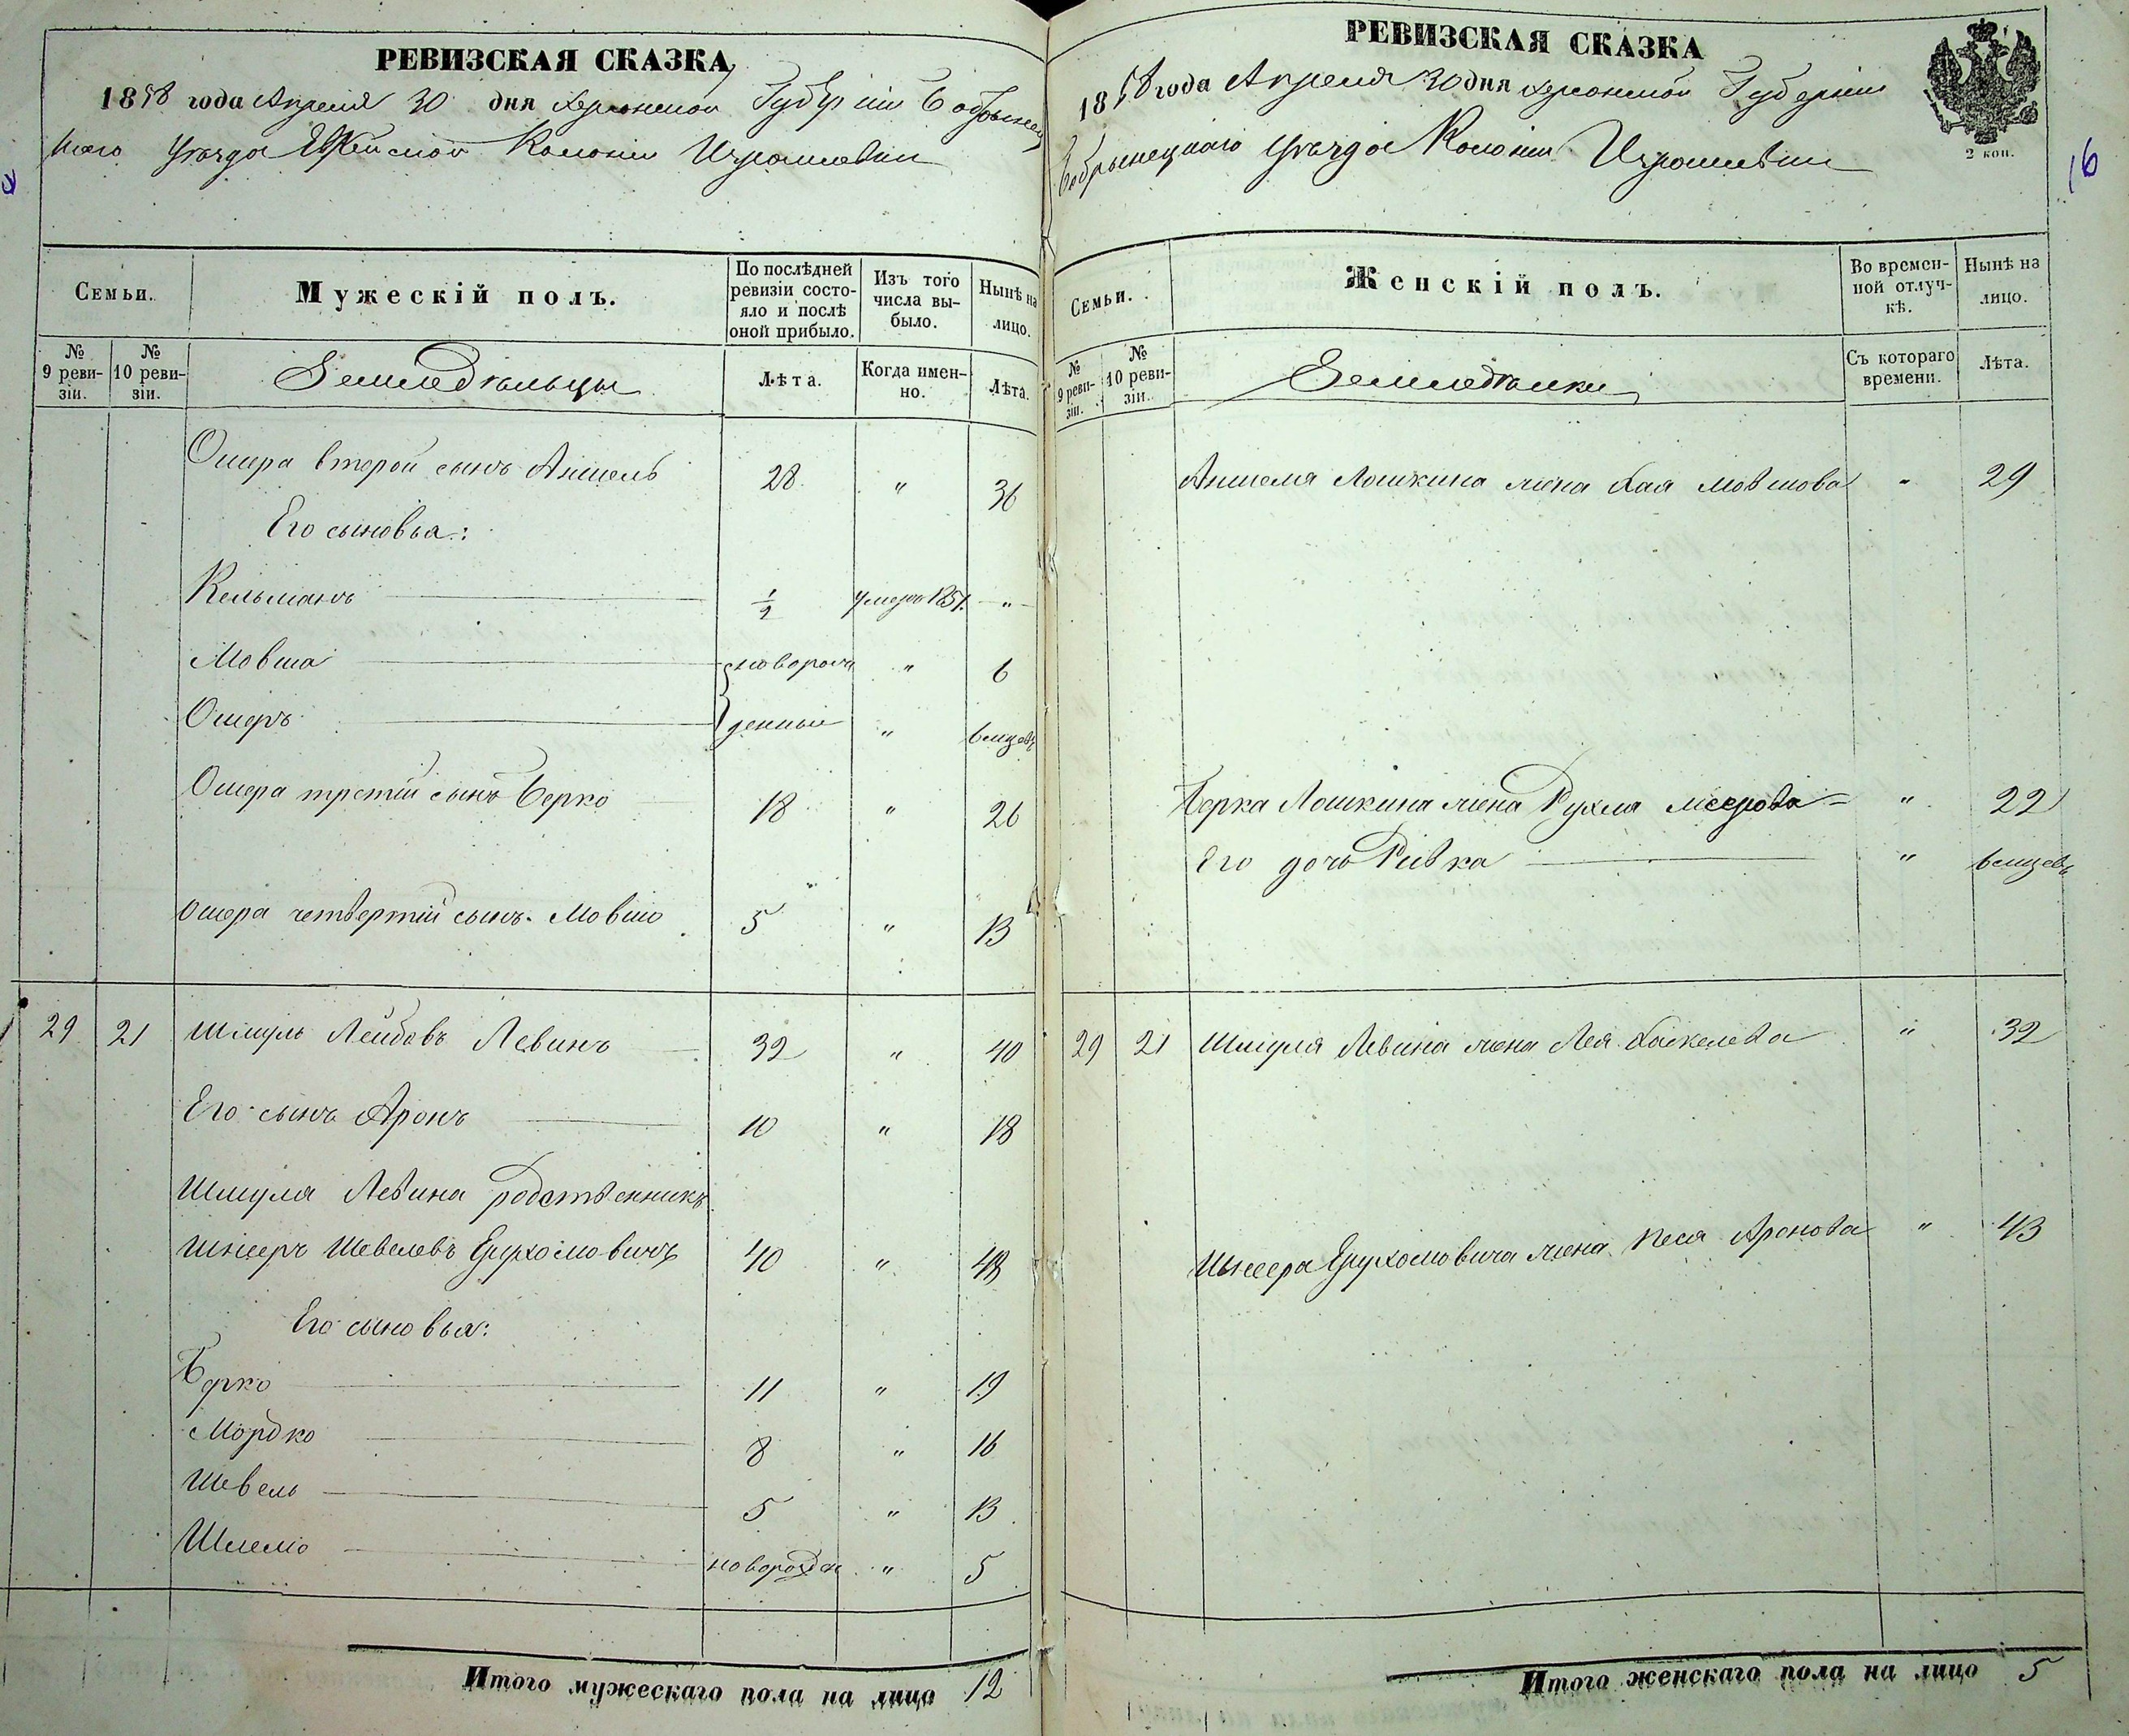 РЕВИЗСКАЯ СКАЗКА
1858 года Апреля 30 дня Херсонской Губерніи Бобрынец
каго Уѣзда Еврейской Колоніи Израилевки
Семьи.
Мужескій полъ.
По послѣдней ревизіи состо-
яло и послѣ
оной прибыло.
Изъ того
числа вы-
было.
Нынѣ на
лицо.
№
9 реви-
зіи.
№
10 реви-
зіи.
Земледѣльцы
Лѣта.
Когда имен-
но.
Лѣта.
Ошера второй сынъ Аншель 28 " 36
Его сыновья:
Кельманъ ½ умеръ 1851. "
Мовша новорож " 6
Ошеръ денные " 6 мцевъ
Ошера третій сынъ Берко 18 " 26
Ошера четвертій сынъ Мовшо 5 " 13
29 21 Шмуль Лейбовъ Левинъ 32 " 40
Его сынъ Аронъ 10 " 18
Шмуля Левина родственникъ
Шнееръ Шевелевъ Ерухомовичъ 40 " 48
Его сыновья:
Берко 11 " 19
Мордко 8 " 16
Шевель 5 " 13
Шлемо новорожден " 5
Итого мужескаго пола на лицо 12
РЕВИЗСКАЯ СКАЗКА
1858 года Апреля 30 дня Херсонской Губерніи
Бобрынецкаго Уѣзда Колоніи Израилевки
2 коп.
16
Семьи.
Женскій полъ.
Во времен-
ной отлуч-
кѣ.
Нынѣ на
лицо.
№
9 реви-
зіи.
№
10 реви-
зіи.
Земледѣлки
Съ котораго
времени.
Лѣта.
Аншеля Лошкина жена Хая Мовшова " 29
Берка Лошкина жена Рухля Меерова " 22
Его дочь Ривка " 6 мцевъ
29 21 Шмуля Левина жена Лея Хаскелева " 32
Шнеера Ерухомовича жена Песя Аронова " 43
Итого женскаго пола на лицо 5